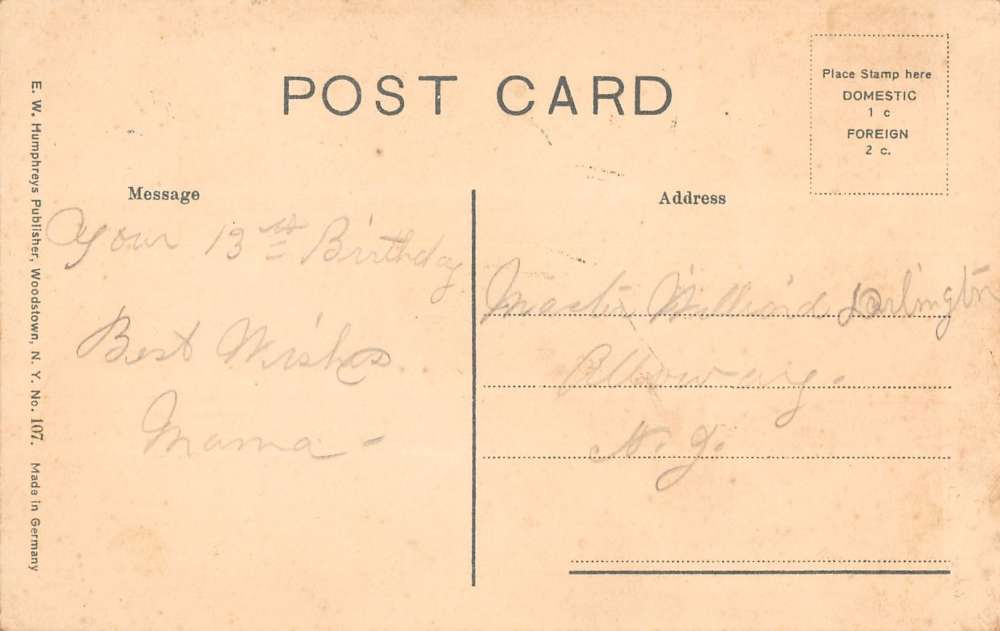 POST CARD
Place Stamp here
DOMESTIC
1 c
FOREIGN
2 c.
E. W. Humphreys Publisher, Woodstown, N. Y. No. 107. Made in Germany
Message
Your 13th Birthday
Best Wishes.
Mama -
Address
Master Willard Darlington
Alloway.
N. J.